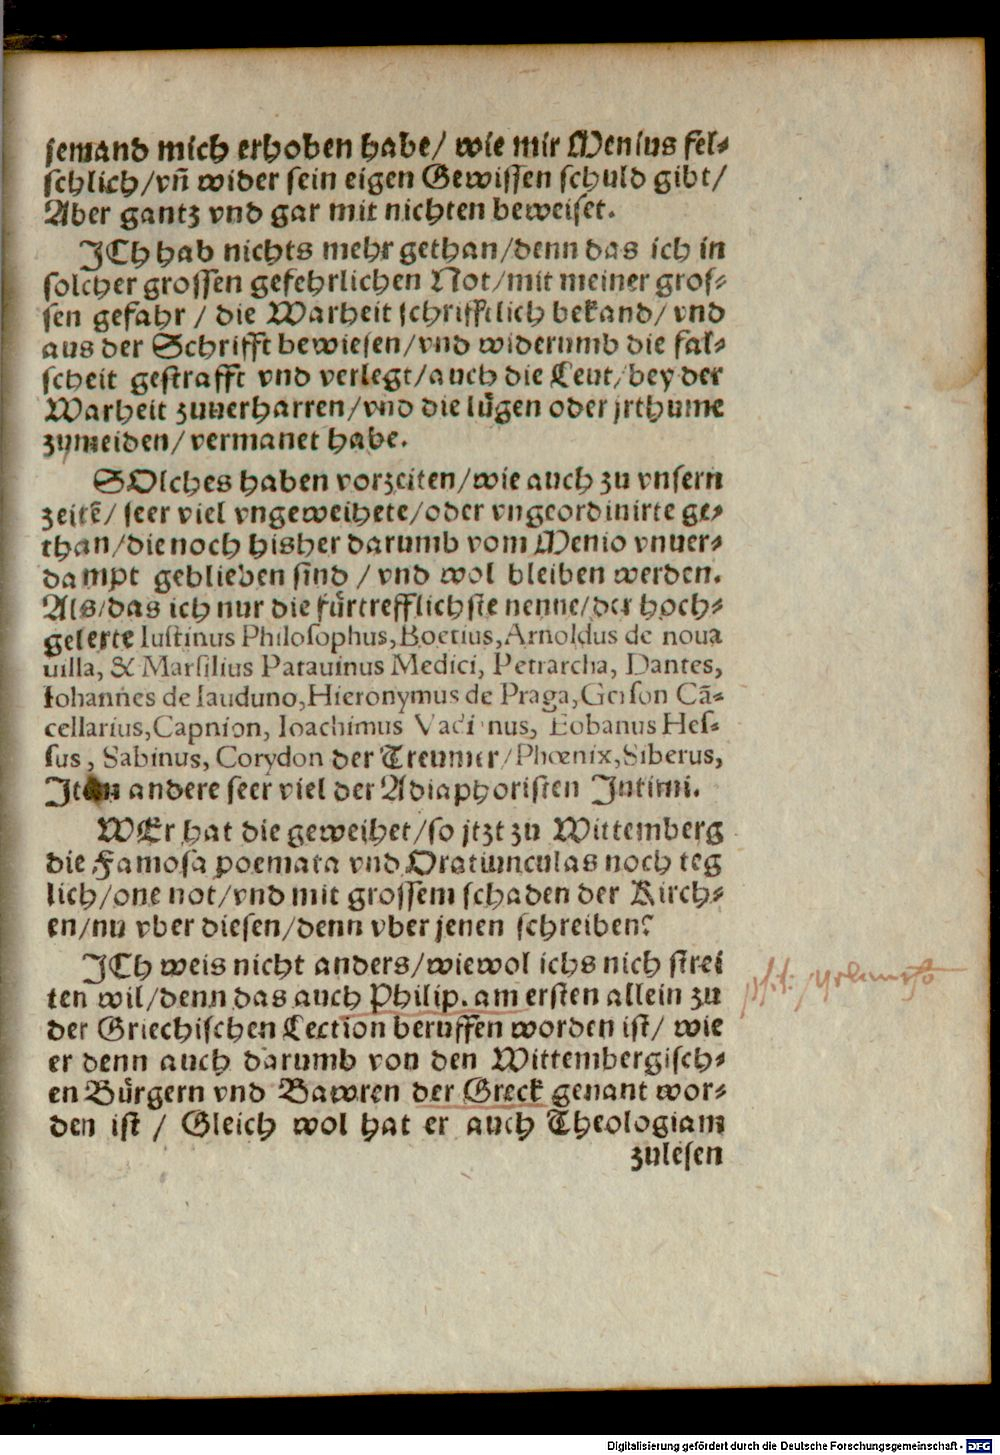 jemand mich erhoben habe/ wie mir Menius fel-
schlich/vñ wider sein eigen Gewissen schuld gibt/
Aber gantz vnd gar mit nichten beweiset.
JCh hab nichts mehr gethan/denn das ich in
solcher grossen gefehrlichen Not/mit meiner gros-
sen gefahr / die Warheit schrifftlich bekand/ vnd
aus der Schrifft bewiesen/vnd widerumb die fal-
scheit gestrafft vnd verlegt/auch die Leut/bey der
Warheit zuuerharren/vnd die lügen oder jrthume
zumeiden/ vermanet habe.
SOlches haben vorzeiten/wie auch zu vnsern
zeitẽ/ seer viel vngeweihete/oder vngeordinirte ge-
than/die noch bisher darumb vom Menio vnuer-
dampt geblieben sind / vnd wol bleiben werden.
Als/das ich nur die fürtrefflichste nenne/der hoch-
gelerte Iustinus Philosophus,Boetius,Arnoldus de noua
uilla, & Marsilius Patauinus Medici, Petrarcha, Dantes,
Iohannes de Iauduno,Hieronymus de Praga,Gerson Cã-
cellarius,Capnion, Ioachimus Vadi nus, Eobanus Hes-
sus, Sabinus, Corydon der Treumer/Phœnix,Siberus,
Item andere seer viel der Adiaphoristen Intimi.
WEr hat die geweihet/so jtzt zu Wittemberg
die Famosa poemata vnd Oratiunculas noch teg
lich/one not/vnd mit grossem schaden der Kirch-
en/nu vber diesen/denn vber jenen schreiben?
JCh weis nicht anders/wiewol ichs nich strei
ten wil/denn das auch Philip. am ersten allein zu
der Griechischen Lection beruffen worden ist/ wie
er denn auch darumb von den Wittembergisch-
en Bürgern vnd Bawren der Greck genant wor-
den ist / Gleich wol hat er auch Theologiam
zulesen
Digitalisierung gefördert durch die Deutsche Forschungsgemeinschaft - DFG